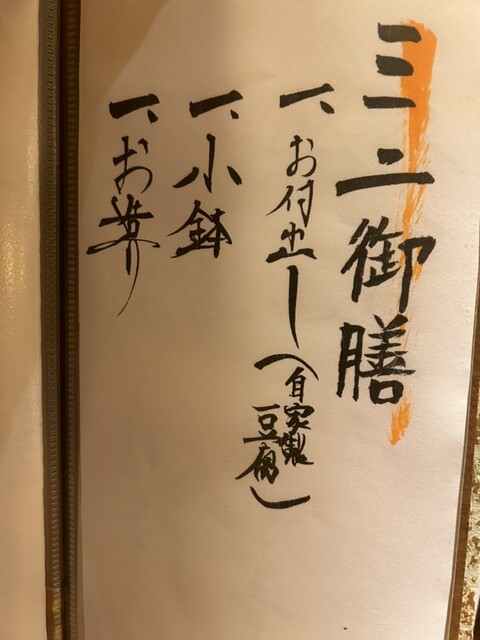 ミニ御膳
一、お付出し(自家製豆腐)
一、小鉢
一、お造り